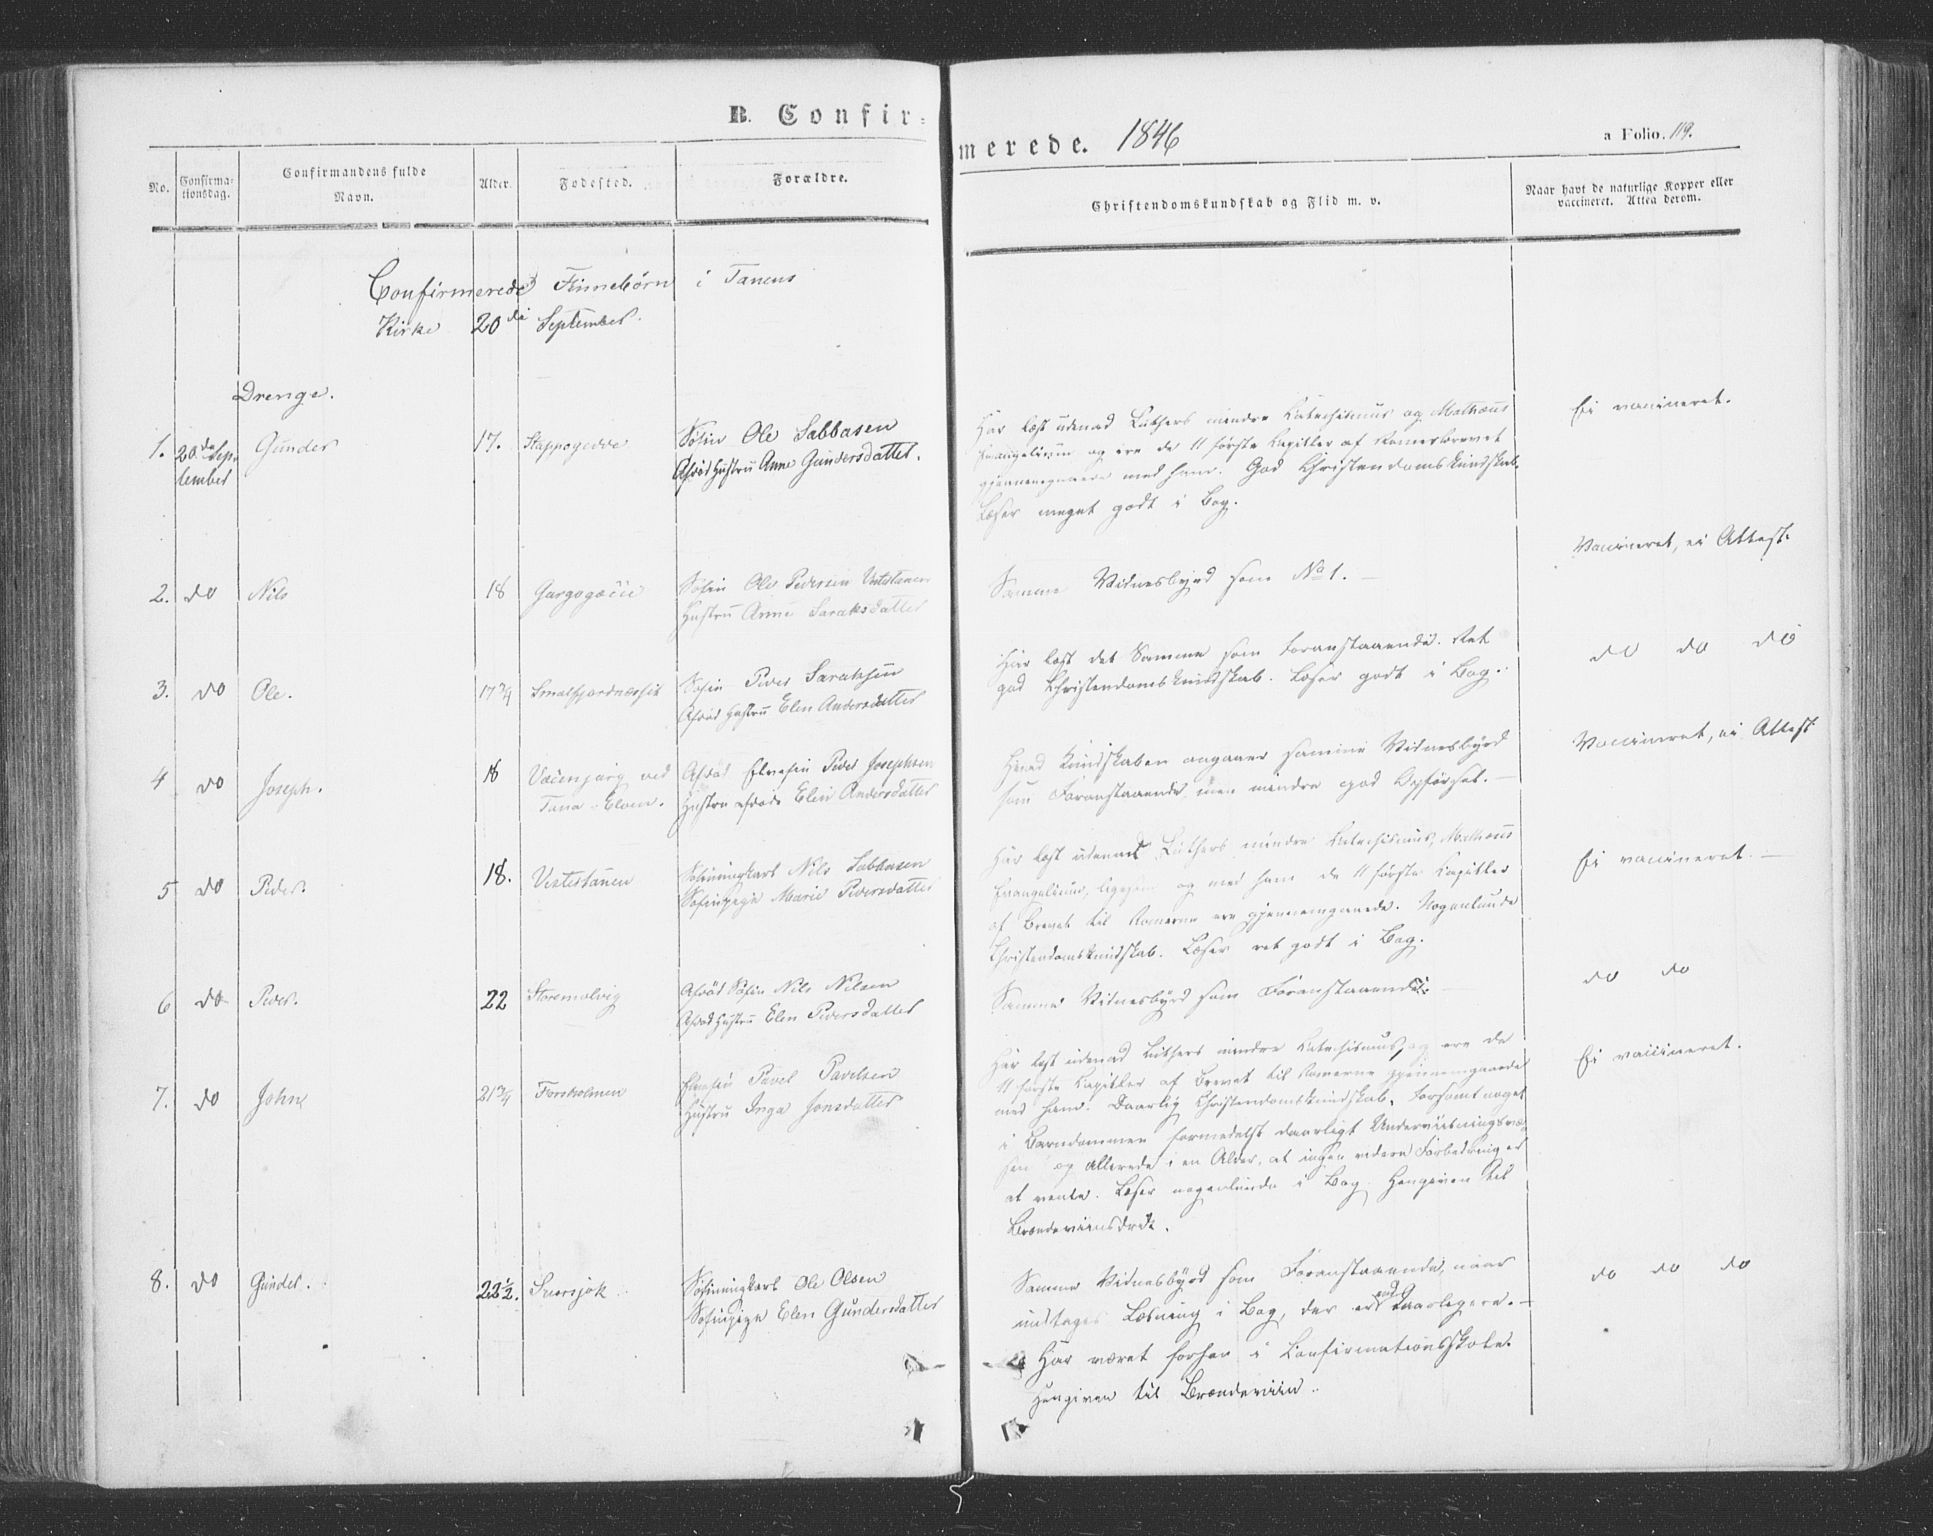 B. Confir-
merede. 1846
a Folio. 119.
No.
Confirma-
tionsdag.
Confirmandens fulde
Navn.
Alder.
Fodested.
Forældre.
Christendomskundskab og Flid m. v.
Naar havt de naturlige Kopper eller
vaccineret. Attea derom.
Confirmerede Finnebørn i Tanens
Kirke 20de September.
Drenge.
1. 20de Sep-
tember
Gunder 17. Stappogedde
Søfin Ole Sabbasen
Afdød Hustru Anne Gundersdatter.
Har læst udenad Luthers mindre Katechismus og Mathæus
Evangelium og ere de 11 første Capitler af Romerbrevet
gjennemgaaede med ham. God Christendomskundskab.
Læser meget godt i Bog.
Ei vaccineret.
2. do Nils 18 Gargogæcie
Søfin Ole Pedersen Vestetanen
Hustru Anne Saraksdatter
Samme Vidnesbyrd som No 1.
Vaccineret, ei Attest.
3. do Ole. 17 3/4 Smalfjordnæsset
Søfin Peder Saraksen
Afdød Hustru Elen Andersdatter
Har læst det Samme som Foranstaaende. Ret
god Christendomskundskab. Læser godt i Bog.
do do do
4 do Joseph. 18
ved
Tana-Elven.
Afdød Elvefin Peder Josephsen
Hustru afdøde Elen Andersdatter
Hvad Kundskaben angaaer samme Vidnesbyrd
som Foranstaaende, men mindre god Opførsel.
Vaccineret, ei Attest
5 do Peder. 18. Vestetanen
Søfinungkarl Nils Sabbasen
Søfinpige Marie Pedersdatter
Har læst udenad Luthers mindre Katechismus, Mathæus
Evangelium, ligesom og med ham de 11 første Capitler
af Brevet til Romerne ere gjennemgaaede. Nogenlunde
Christendomskundskab. Læser ret godt i Bog.
Ei vaccineret.
6 do Peder. 22 Storemolvig
Afdød Søfin Nils Nilsen
Afdød Hustru Elen Pedersdatter
Samme Vidnesbyrd som Foranstaaende.
do do
7. do John 21 3/4 Forsholmen
Elvefin Pavel Pavelsen
Hustru Inga Jonsdatter
Har læst udenad Luthers mindre Katechismus, og ere de
11 første Capitler af Brevet til Romerne gjennemgaaede
med ham. Daarlig Christendomskundskab. Forsømt noget
i Barndommen formedelst daarligt Underviisningsvæ-
sen og allerede i en Alder, at ingen videre Forbedring er
at vente. Læser nogenlunde i Bog. Hengiven til
Brændeviinsdrik.
Ei vaccineret.
8. do Gunder. 22 1/2. Suorsjok
Søfinungkarl Ole Olsen
Søfinpige Elen Gundersdatter
Samme Vidnesbyrd som Foranstaaende, naar
undtages Læsning i Bog, der er endog daarligere.
Har været forhen i Confirmationsskole.
Hengiven til Brændeviin.
do do do